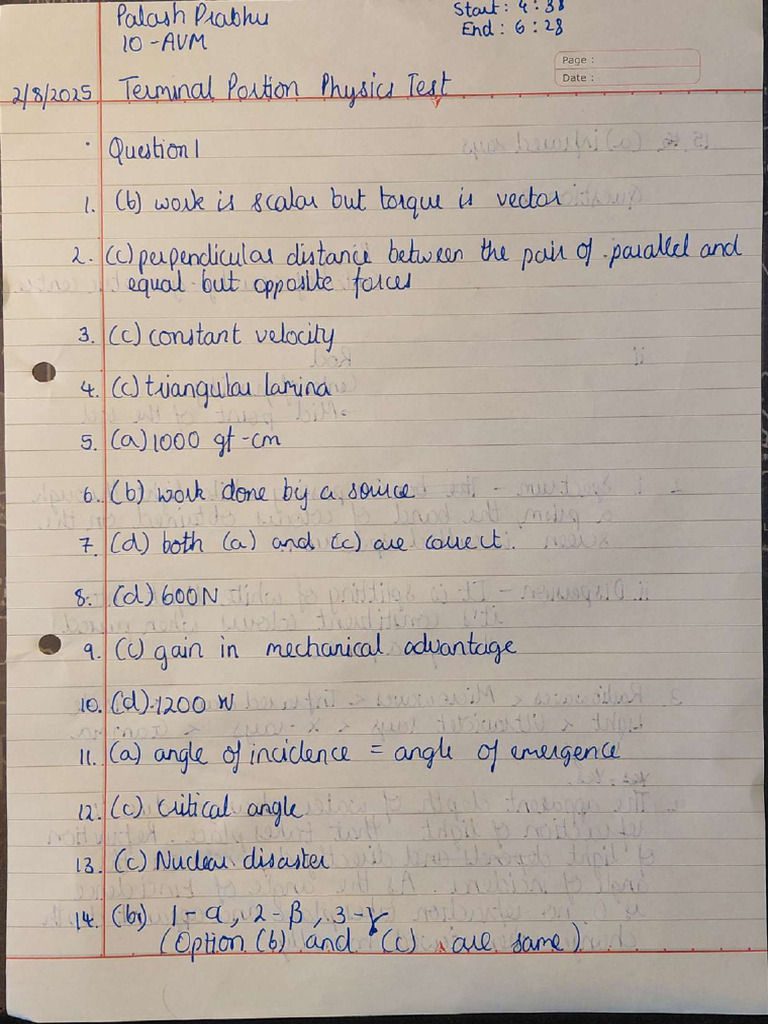 Palash Prabhu
Start: 4:38
10-AVM
End: 6:28
Page :
Date :
2/8/2025 Terminal Portion Physics Test
Question 1
1. (b) work is scalar but torque is vector
2. (c) perpendicular distance between the pair of parallel and
equal but opposite forces
3. (c) constant velocity
4. (c) triangular lamina
5. (a) 1000 gf-cm
6. (b) work done by a source
7. (d) both (a) and (c) are correct.
8. (d) 600N
9. (c) gain in mechanical advantage
10. (d) 1200 W
11. (a) angle of incidence = angle of emergence
12. (c) critical angle
13. (c) Nuclear disaster
14. (b) 1-α, 2-β, 3-γ
(Option (b) and (c) are same)